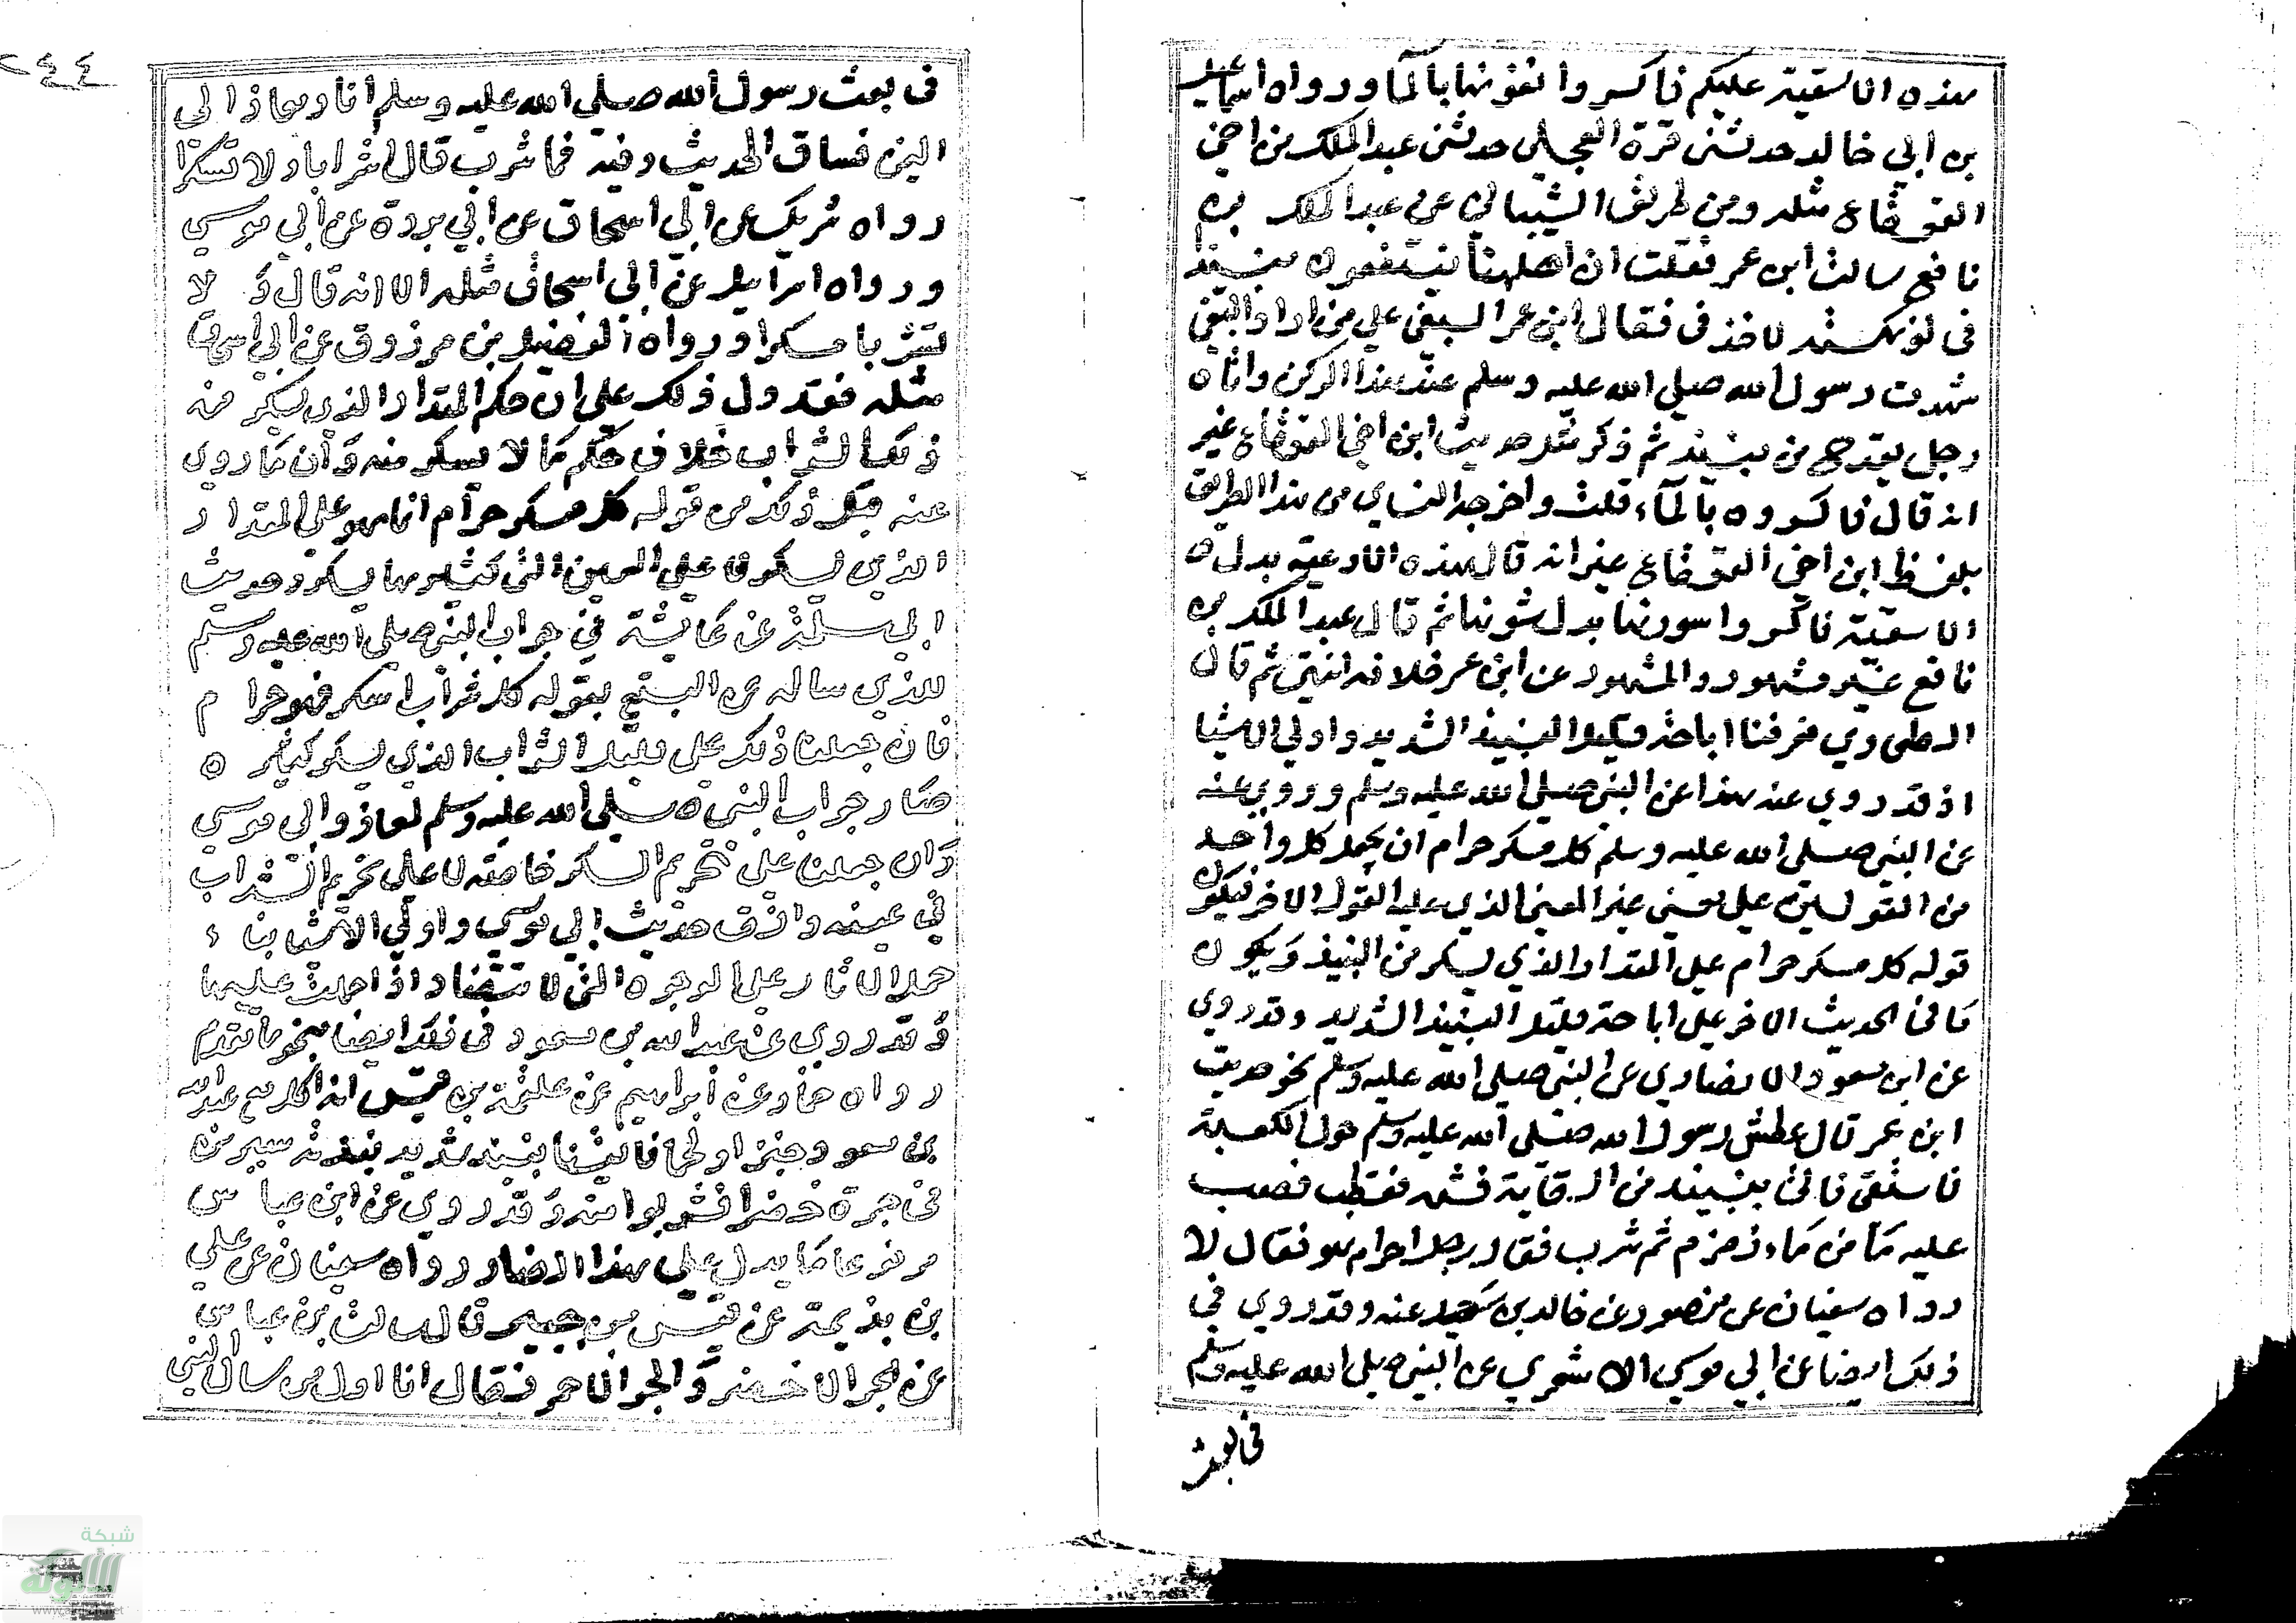 هذه الاسقية عليكم فاكسروا متونها بالماء ورواه اسماعيل
بن ابي خالد حدثني قرة العجلي حدثني عبدالملك بن اخي
القعقاع مثله ومن طريق الشيباني عن عبدالملك بن
نافع سالت ابن عمر فقلت ان اهلنا ينبذون نبيذ
في لو نكهته لاخذ في فقال ابن عمر البغي علي من اراد البغي
شهدت رسول الله صلى الله عليه وسلم عند هذا الركن واتاه
رجل بقدح من نبيذ ثم ذكر مثل حديث ابن اخي القعقاع غير
انه قال فاكسروه بالماء قلت واخرجه النساي من هذا الطريق
بلفظ ابن اخي القعقاع غير انه قال هذه الاوعية بدل ه
الاسقية فاكسروا سورتها بدل متونها ثم قال عبدالملك بن
نافع غير مشهور والمشهور عن ابن عمر خلافه انتهى ثم قال
الطحاوي فعرفنا اباحة قليل النبيذ الشديد واولى الاشيا
اذ قد روي عنه هذا عن النبي صلى الله عليه وسلم وروي عنه
عن النبي صلى الله عليه وسلم كل مسكر حرام ان يحمل كل واحد
من القولين على معنى غير المعنى الذي عليه القول الاخر فيكون
قوله كل مسكر حرام على المقدار الذي يسكر من النبيذ ويكون
ما في الحديث الاخر على اباحة قليل النبيذ الشديد وقد روي
عن ابن مسعود الانصاري عن النبي صلى الله عليه وسلم نحو حديث
ابن عمر قال عطش رسول الله صلى الله عليه وسلم حول الكعبة
فاستقى فاتى بنبيذ من السقاية فشمه فقطب فصب
عليه ما من ماء زمزم ثم شرب فقال رجل احرام هو فقال لا
رواه سفيان عن منصور عن خالد بن سعد عنه وقد روي في
ذلك ايضا عن ابي موسى الاشعري عن النبي صلى الله عليه وسلم
في بعث
٢٤٤
في بعث رسول الله صلى الله عليه وسلم انا ومعاذا الى
اليمن فساق الحديث وفيه فما شرب قال اشربا ولا تسكرا
رواه شريك عن ابي اسحاق عن ابي بردة عن ابي موسى
ورواه اسرائيل عن ابي اسحاق مثله الا انه قال و لا
تشربا مسكرا ورواه الفضيل بن مرزوق عن ابي اسحاق
مثله فقد دل ذلك على ان حكم المقدار الذي يسكر منه
ذلك الشراب خلاف حكم ما لا يسكر منه وان ما روي
عنه قبل ذلك من قوله كل مسكر حرام انما هو على المقدار
الذي يسكر لا على العين التي كثيرها يسكر وحديث
ابي سلمة عن عايشة في جواب النبي صلى الله عليه وسلم
للذي ساله عن البتع بقوله كل شراب اسكر فهو حرام
فان جعلنا ذلك على قليل الشراب الذي يسكر كثيره
ضاد جواب النبي صلى الله عليه وسلم لمعاذ وابي موسى
وان جعلنا على تحريم السكر خاصة لا على تحريم الشراب
في عينه وافق حديث ابي موسى واولى الاشيا بنا
حمل الاثار على الوجوه التي لا تتضاد اذا حملت عليها
وقد روي عن عبدالله بن مسعود في ذلك ايضا نحو ما تقدم
رواه حماد عن ابراهيم عن علقمة بن قيس انه اكل مع عبدالله
بن مسعود خبزا ولحما فاتينا بنبيذ شديد نبذته سيرين
في جرة خضرا فشربوا منه وقد روي عن ابن عباس
مرفوعا ما يدل على هذا ايضا ورواه سفيان عن علي
بن بذيمة عن قيس بن حبتر قال سالت ابن عباس
عن الجر الاخضر والجر الاحمر فقال انا اول من سال النبي
شبكة
الألوكة
www.alukah.net